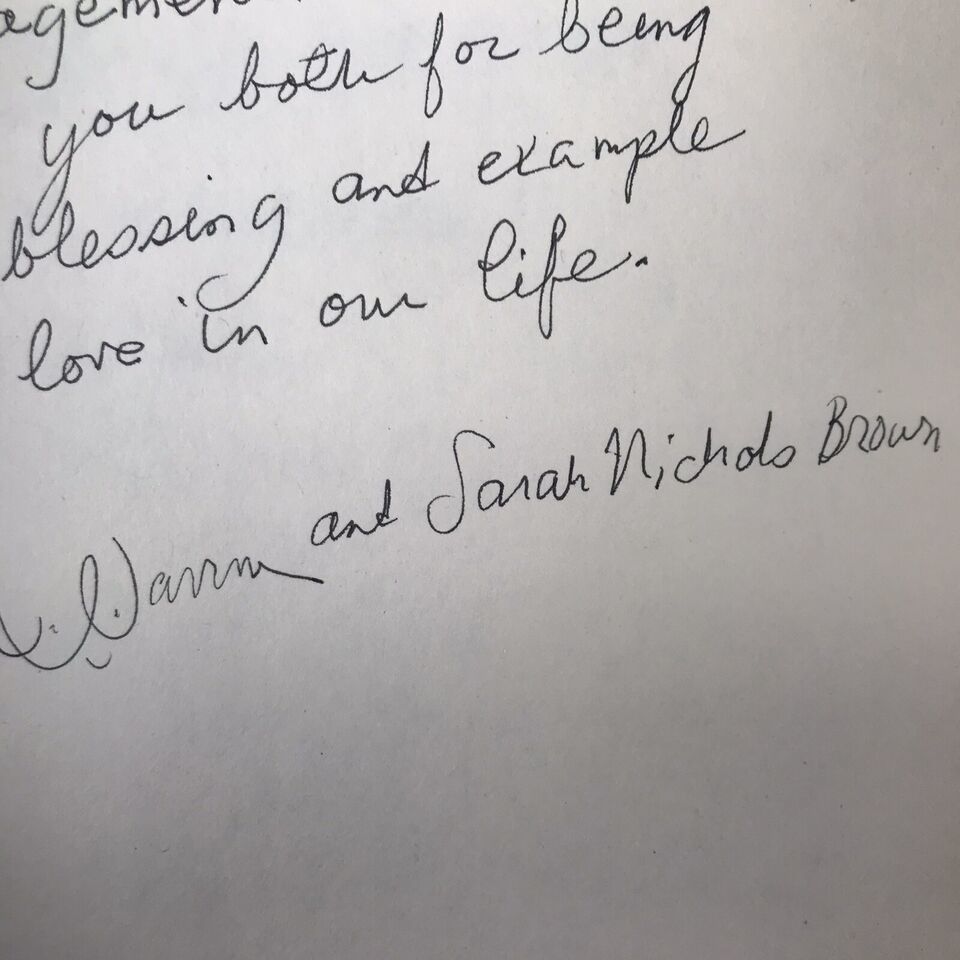 you both for being
blessing and example
love in our life.
and Sarah Nichols Brown